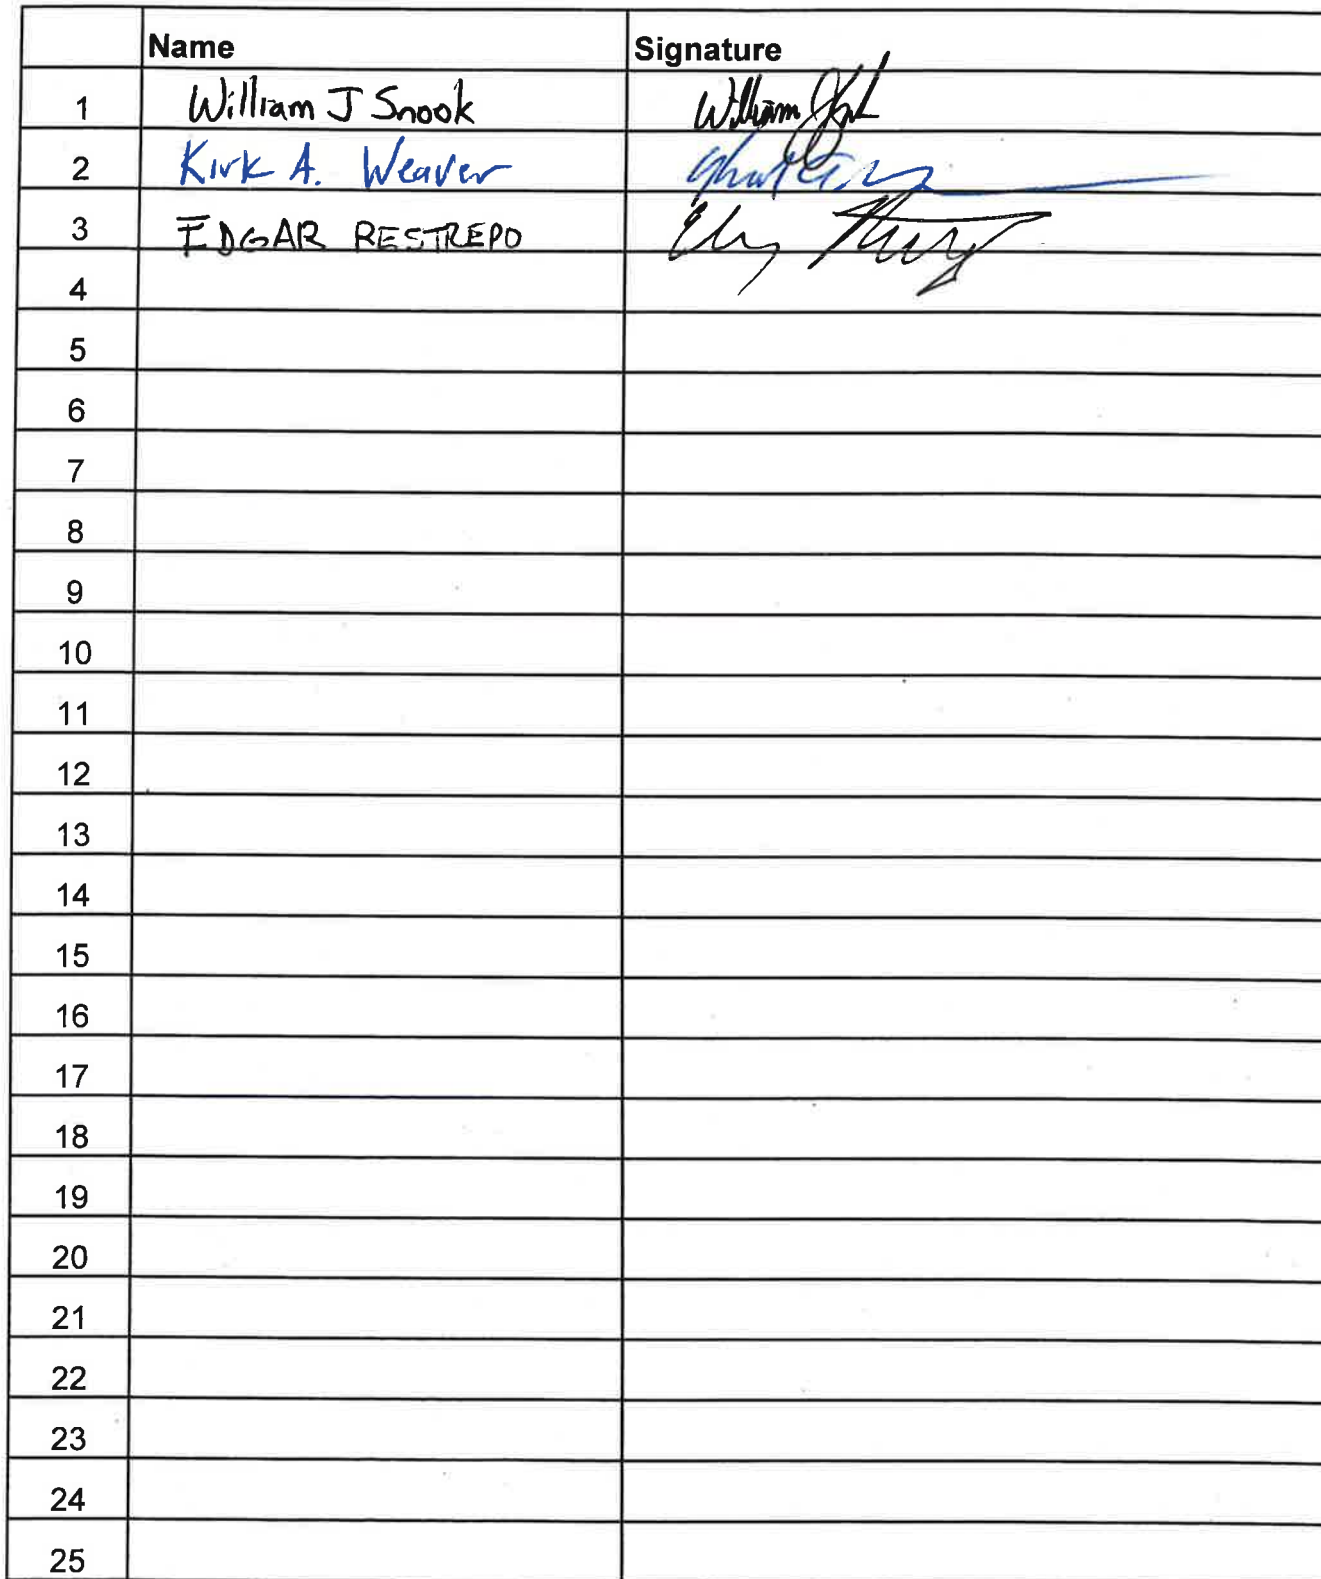 Name Signature
1 William J Snook William
2 Kirk A. Weaver
3 EDGAR RESTREPO
4
5
6
7
8
9
10
11
12
13
14
15
16
17
18
19
20
21
22
23
24
25